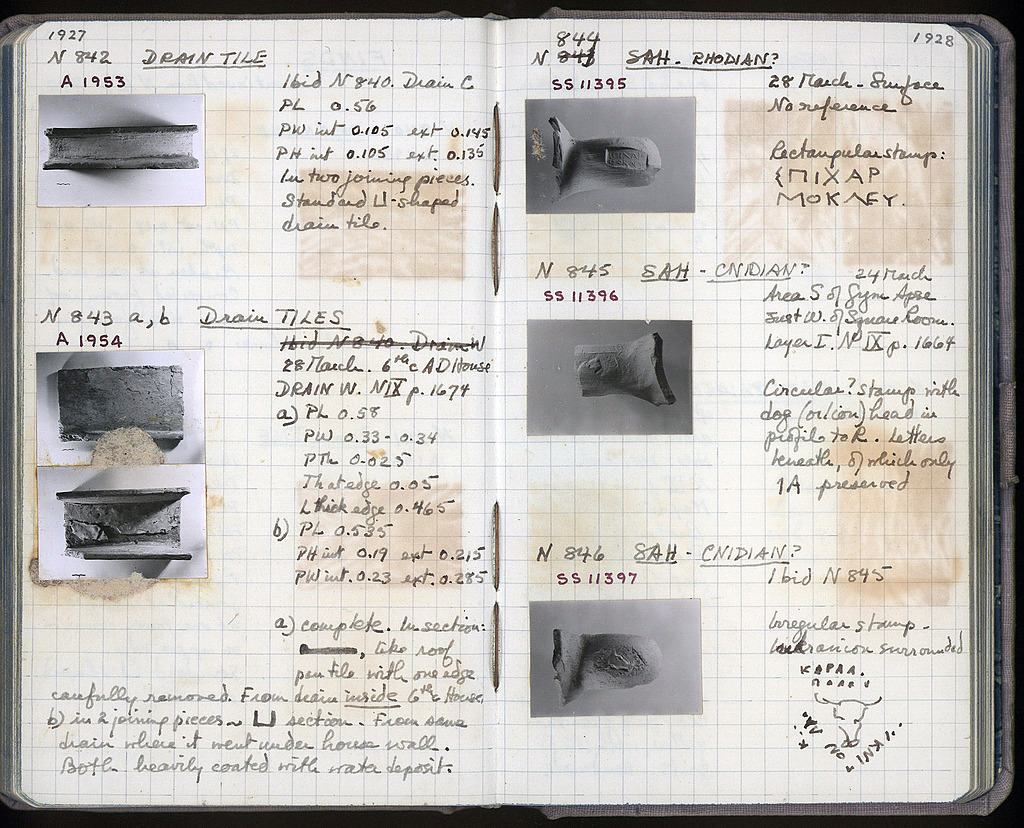 1927
N 842 DRAIN TILE
A 1953
Ibid N 840. Drain C
PL 0.56
PW int 0.105 ext 0.145
PH int 0.105 ext. 0.135
In two joining pieces.
Standard ⊔-shaped
drain tile.
N 843 a, b Drain TILES
A 1954
Ibid N 840. Drain W
28 March. 6th c AD House
DRAIN W. N IX p. 1674
a) PL 0.58
PW 0.33-0.34
PTh 0.025
Th at edge 0.05
L thick edge 0.465
b) PL 0.535
PH int 0.19 ext 0.215
PW int. 0.23 ext 0.285
a) complete. In section:
, like roof
pan tile with one edge
carefully removed. From drain inside 6th c House.
b) in 2 joining pieces ⊔ section. From same
drain where it went under house wall.
Both heavily coated with water deposit.
1928
844
N 843 SAH - RHODIAN?
SS 11395
28 March - Surface
No reference
Rectangular stamp:
ΕΠΙΧΑΡ
ΜΟΚΛΕΥ.
N 845 SAH - CNIDIAN?
SS 11396
24 March
Area S of Gym Apse
Just W. of Square Room.
Layer I. N IX p. 1664
Circular? stamp with
dog (or lion) head in
profile to R. Letters
beneath, of which only
IA preserved
N 846 SAH - CNIDIAN?
SS 11397
Ibid N 845
Irregular stamp -
surrounded
ΚΑΡΑΔ.